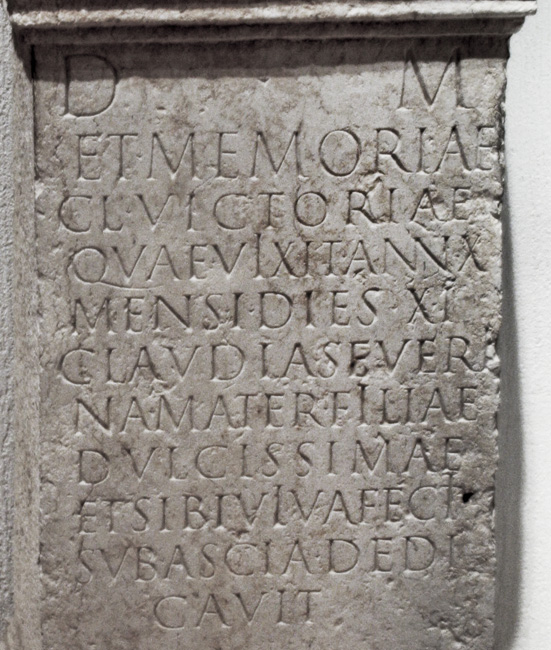 D M
ET·MEMORIAE
CL·VICTORIAE
QVAEVIXITANNX
MENSI·DIES XI
CLAVDIASEVER
NAMATERFILIAE
DVLCISSIMAE
ETSIBIVIVAFECI
SVBASCIADEDI
CAVIT